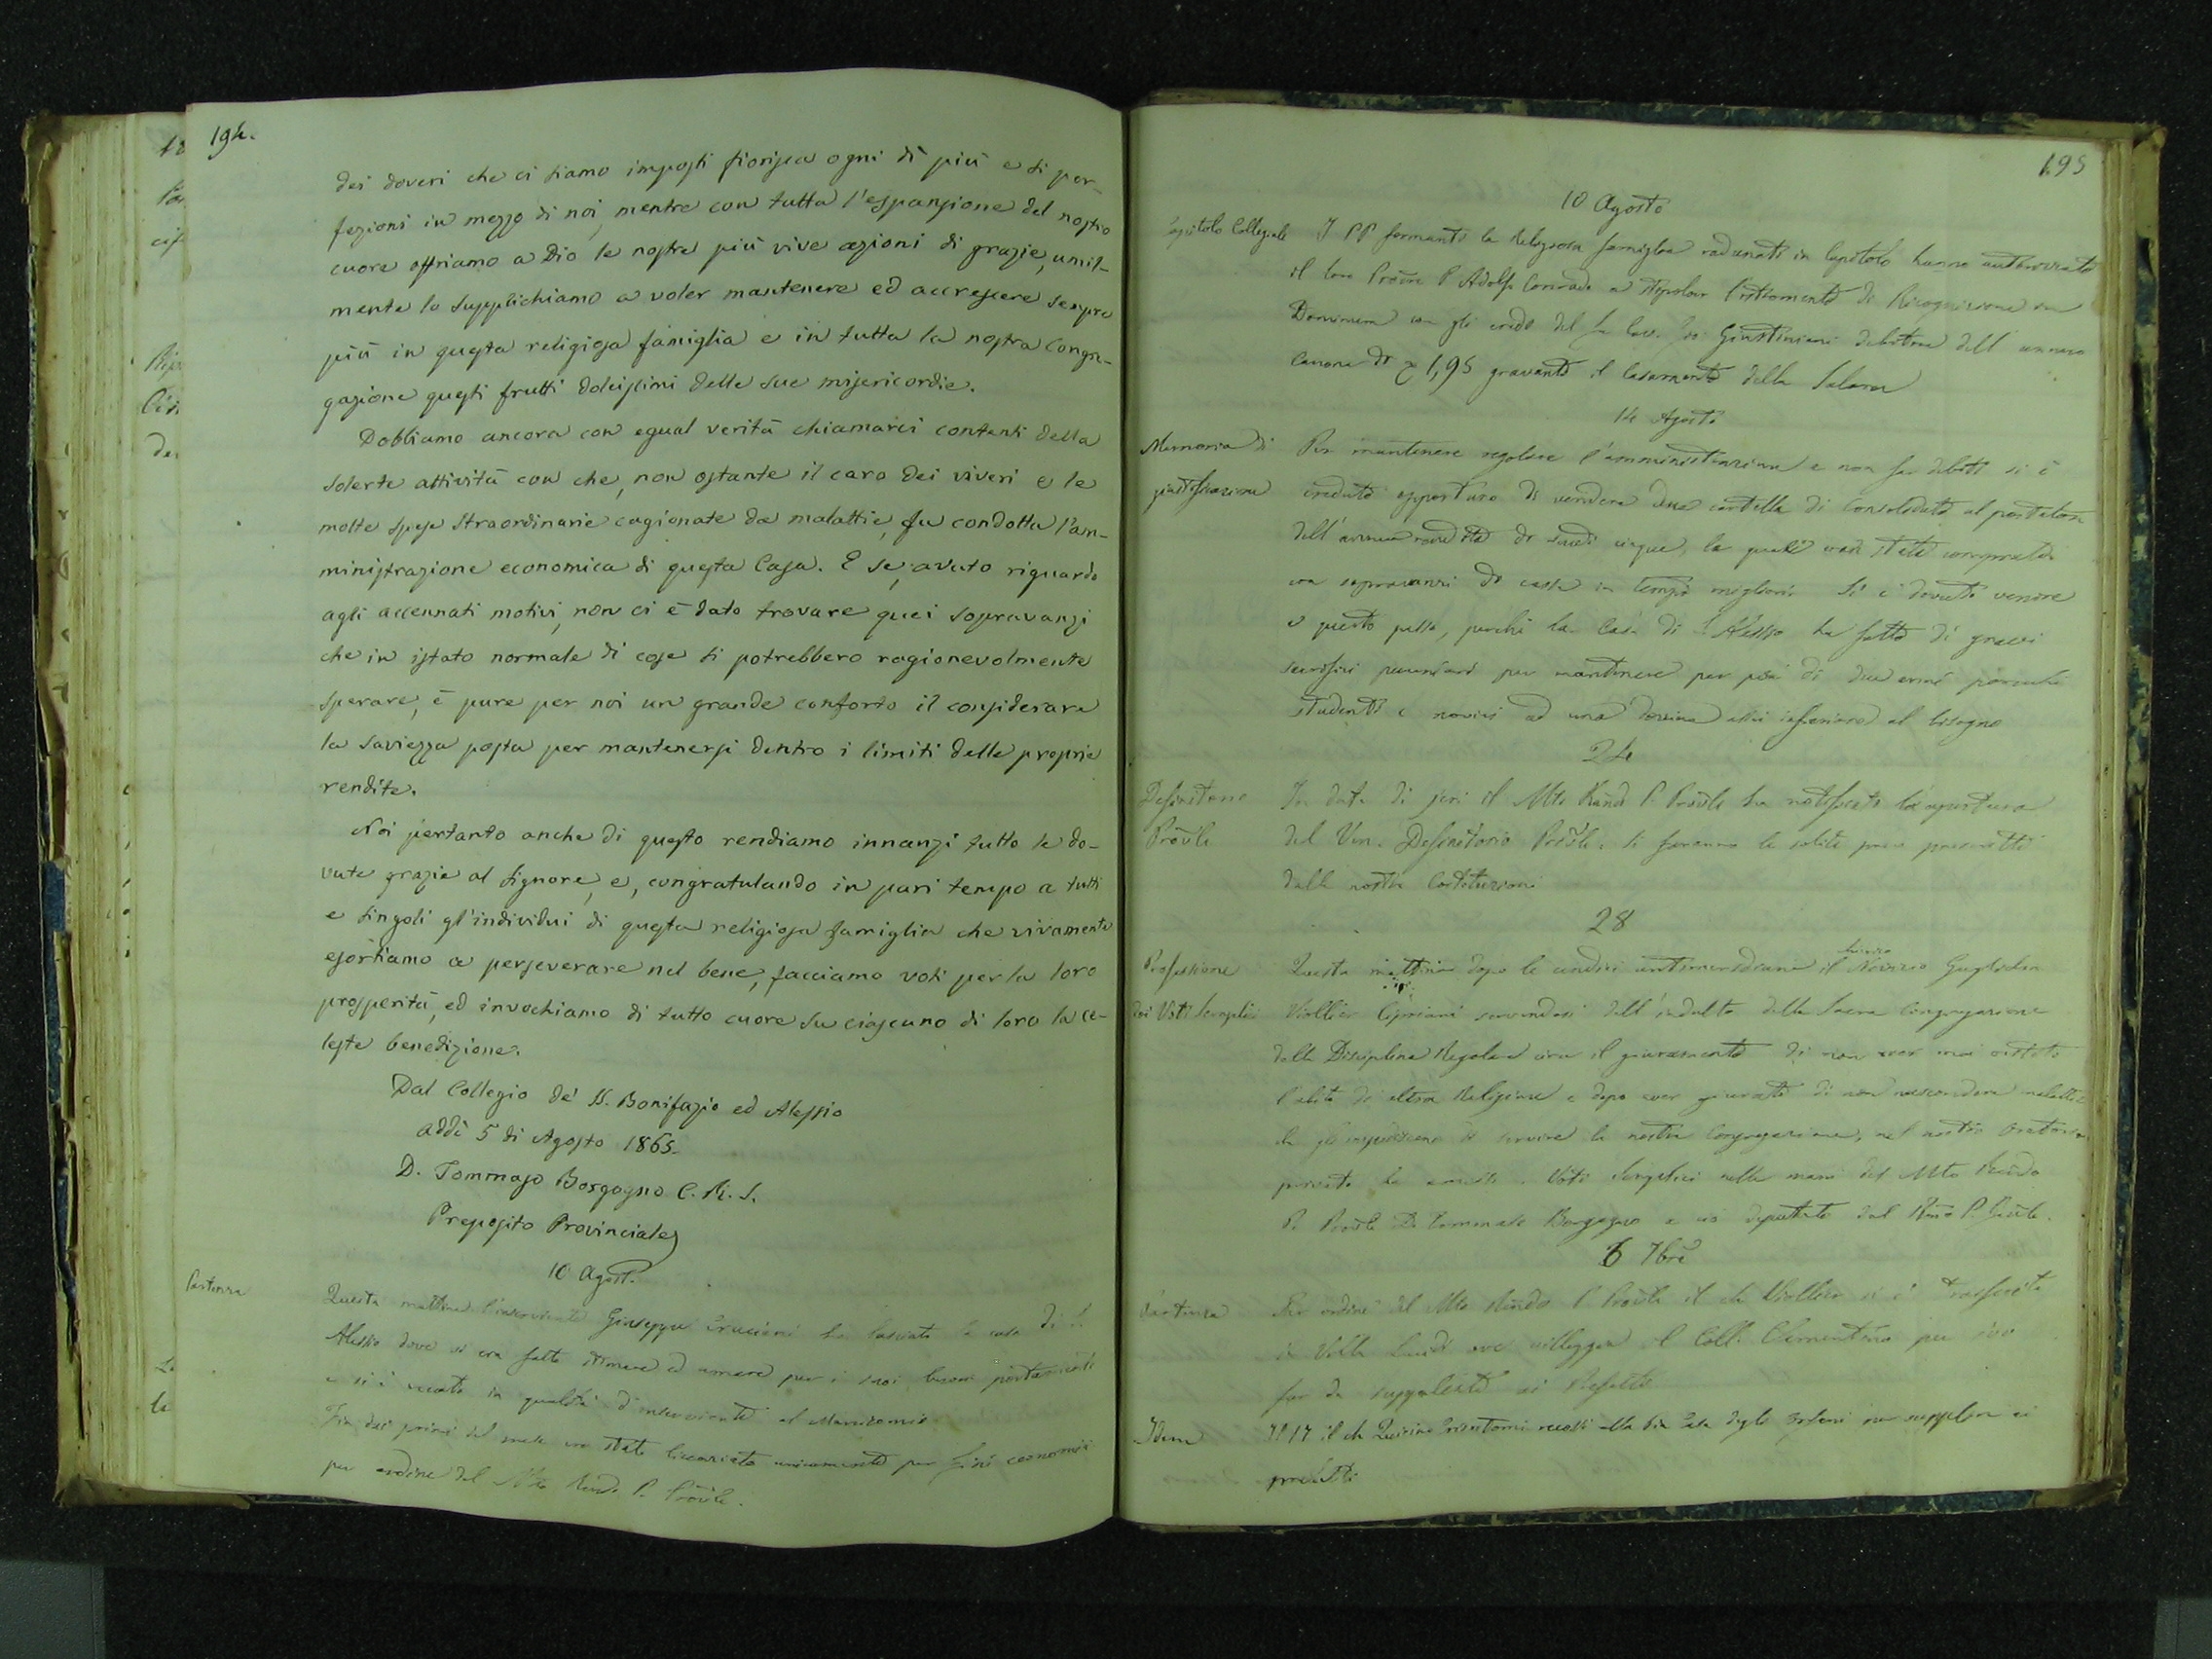 194.
dei doveri che ci siamo imposti fiorisca ogni dì più e si per-
fezioni in mezzo di noi, mentre con tutta l'espansione del nostro
cuore offriamo a Dio le nostre più vive azioni di grazie, umil-
mente lo supplichiamo a voler mantenere ed accrescere sempre
più in questa religiosa famiglia e in tutta la nostra Congre-
gazione questi frutti dolcissimi delle sue misericordie.
Dobbiamo ancora con egual verità chiamarci contenti della
solerte attività con che, non ostante il caro dei viveri e le
molte spese straordinarie cagionate da malattie, fu condotta l'am-
ministrazione economica di questa Casa. E se, avuto riguardo
agli accennati motivi, non ci è dato trovare quei sopravanzi
che in istato normale di cose si potrebbero ragionevolmente
sperare, è pure per noi un grande conforto il considerare
la saviezza posta per mantenersi dentro i limiti delle proprie
rendite.
Noi pertanto anche di questo rendiamo innanzi tutto le do-
vute grazie al Signore, e, congratulando in pari tempo a tutti
e singoli gl'individui di questa religiosa famiglia che vivamente
esortiamo a perseverare nel bene, facciamo voti per la loro
prosperità, ed invochiamo di tutto cuore su ciascuno di loro la ce-
leste benedizione.
Dal Collegio de' SS. Bonifazio ed Alessio
addì 5 di Agosto 1865.
D. Tommaso Borgogno C. R. S.
Preposito Provinciale
10 Agost.
Partenza
Questa mattina l'inserviente Giuseppe Graziani ha lasciato la casa di S.
Alessio dove si era fatto stimare ed amare per i suoi buoni portamenti
e si è recato in qualità d'inserviente al Manicomio.
Fin dai primi del mese era stato licenziato unicamente per fini economici
per ordine del Mto Rendo P. Prõule.
195
10 Agosto
Capitolo Collegiale
I PP formanti la Religiosa famiglia radunati in Capitolo hanno autorizzato
il loro Proãre P Adolfo Conrado a stipolare l'istromento di Ricognizione in
Dominum con gli eredi del fu Cav. Giustiniani debitore dell'annuo
Canone di 1,95 gravante il Casamento della Salara
14 Agosto
Memoria di
giustificazione
Per mantenere regolare l'amministrazione e non far debiti si è
creduto opportuno di vendere una cartella di Consolidato al portatore
dell'annua rendita di scudi cinque, la quale era stata comprata
con sopravanzi di cassa in tempi migliori. Si è dovuto venire
a questo passo, perchè la Casa di S. Alessio ha fatto di gravi
sacrifizi pecuniari per mantenere per più di due anni parecchi
studenti e novizi ad una dozzina assai inferiore al bisogno
24
Definitorio
Prõule
In data di jeri il Mto Rendo P. Prõule ha notificato l'apertura
del Ven. Definitorio Prõule. Si faranno le solite preci prescritte
dalle nostre Costituzioni
28
Professione
dei Voti Semplici
Questa mattina dopo le undici antimeridiane il Novizio Guglielmo
Viollier Cipriani servendosi dell'indulto della Sacra Congregazione
della Disciplina Regolare circa il giuramento di non aver mai vestito
l'abito di altra Religione e dopo aver giurato di non nascondere malattie
che gl'impediscano di servire la nostra Congregazione, nel nostro Oratorio
privato ha emesso i Voti Semplici nelle mani del Mto Rendo
P. Prõule D. Tommaso Borgogno a ciò deputato dal Rmo P. Gñale.
6 7bre
Partenza
Per ordine del Mto Rendo P. Prõule il ch Viollier si è trasferito
in Villa Lucidi ove villeggia il Coll. Clementino per ivi
far da supplente ai Prefetti
Idem
Il 17 il ch Quirino recossi alla Pia Casa degli Orfani per supplire ai
prefetti